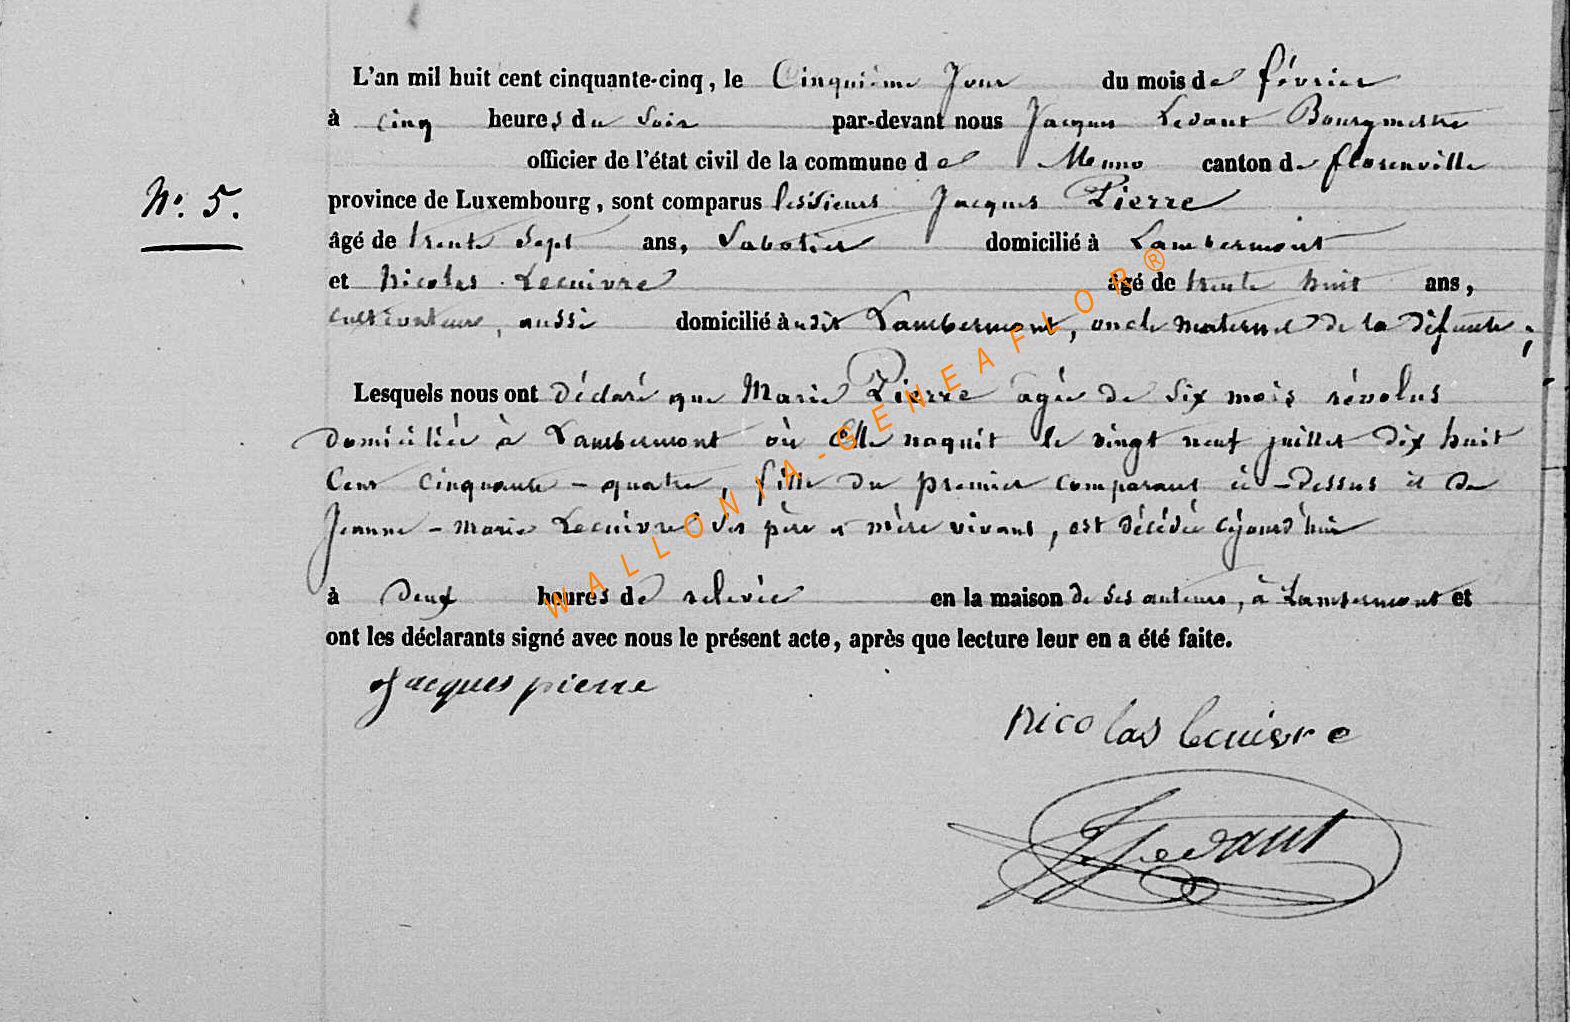 L'an mil huit cent cinquante-cinq, le Cinquième Jour du mois de février
à cinq heures du soir par-devant nous Jacques Ledant Bourgmestre
officier de l'état civil de la commune de Muno canton de florenville
N°. 5.
province de Luxembourg, sont comparus les sieurs Jacques Pierre
âgé de trente sept ans, Sabotier domicilié à Lambermont
et Nicolas Lecuivre âgé de trente huit ans,
cultivateur, aussi domicilié audit Lambermont, oncle maternel de la défunte;
Lesquels nous ont déclaré que Marie Pierre agée de six mois révolus
domiciliée à Lambermont où elle naquit le vingt neuf juillet dix huit
Cent cinquante-quatre, fille du premier comparant ci-dessus et de
Jeanne-Marie Lecuivre ses père et mère vivans, est décédée cejourd'hui
à deux heures de relevée en la maison de ses auteurs, à Lambermont et
ont les déclarants signé avec nous le présent acte, après que lecture leur en a été faite.
Jacques pierre
nicolas lecuivre
JLedant
WALLONIA-GENEAFLOR®